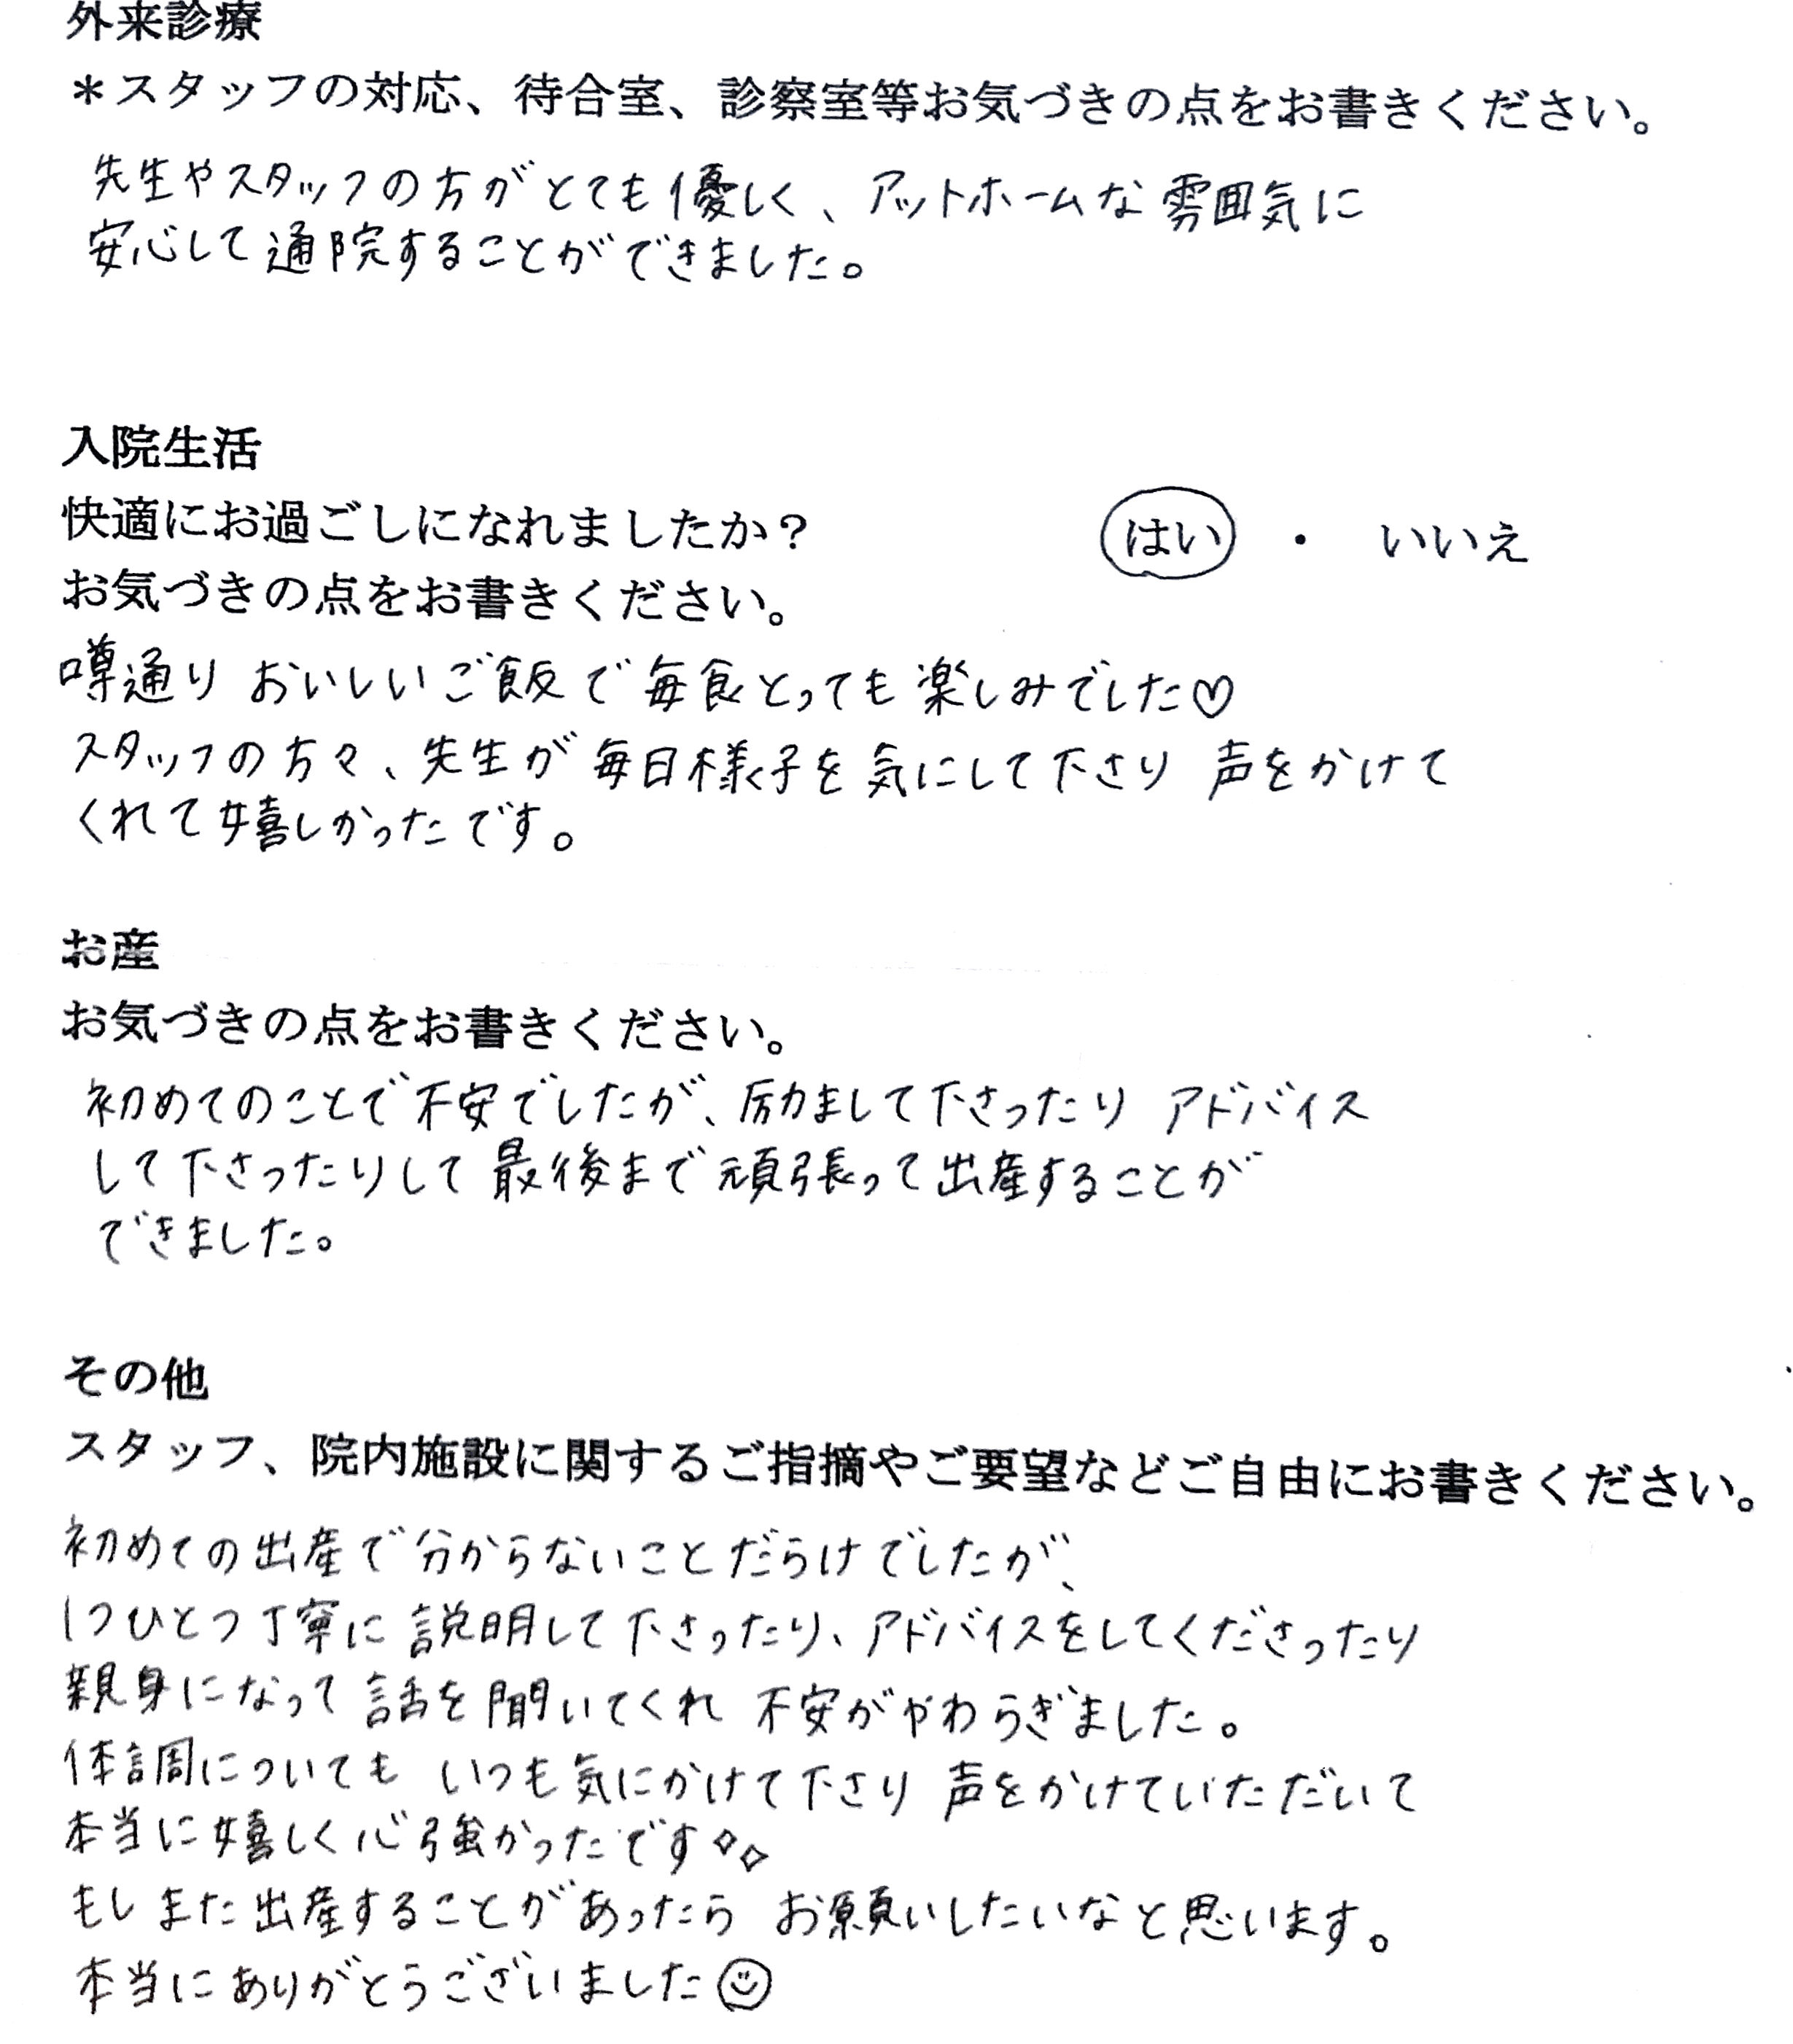 外来診療
＊スタッフの対応、待合室、診察室等お気づきの点をお書きください。
先生やスタッフの方がとても優しく、アットホームな雰囲気に
安心して通院することができました。
入院生活
快適にお過ごしになれましたか？ はい ・ いいえ
お気づきの点をお書きください。
噂通り おいしいご飯で毎食とっても楽しみでした♡
スタッフの方々、先生が毎日様子を気にして下さり 声をかけて
くれて嬉しかったです。
お産
お気づきの点をお書きください。
初めてのことで不安でしたが、励まして下さったり アドバイス
して下さったりして最後まで頑張って出産することが
できました。
その他
スタッフ、院内施設に関するご指摘やご要望などご自由にお書きください。
初めての出産で分からないことだらけでしたが、
1つひとつ丁寧に説明して下さったり、アドバイスをしてくださったり
親身になって話を聞いてくれ 不安がやわらぎました。
体調についても いつも気にかけて下さり 声をかけていただいて
本当に嬉しく心強かったです
もしまた出産することがあったら お願いしたいなと思います。
本当にありがとうございました☺